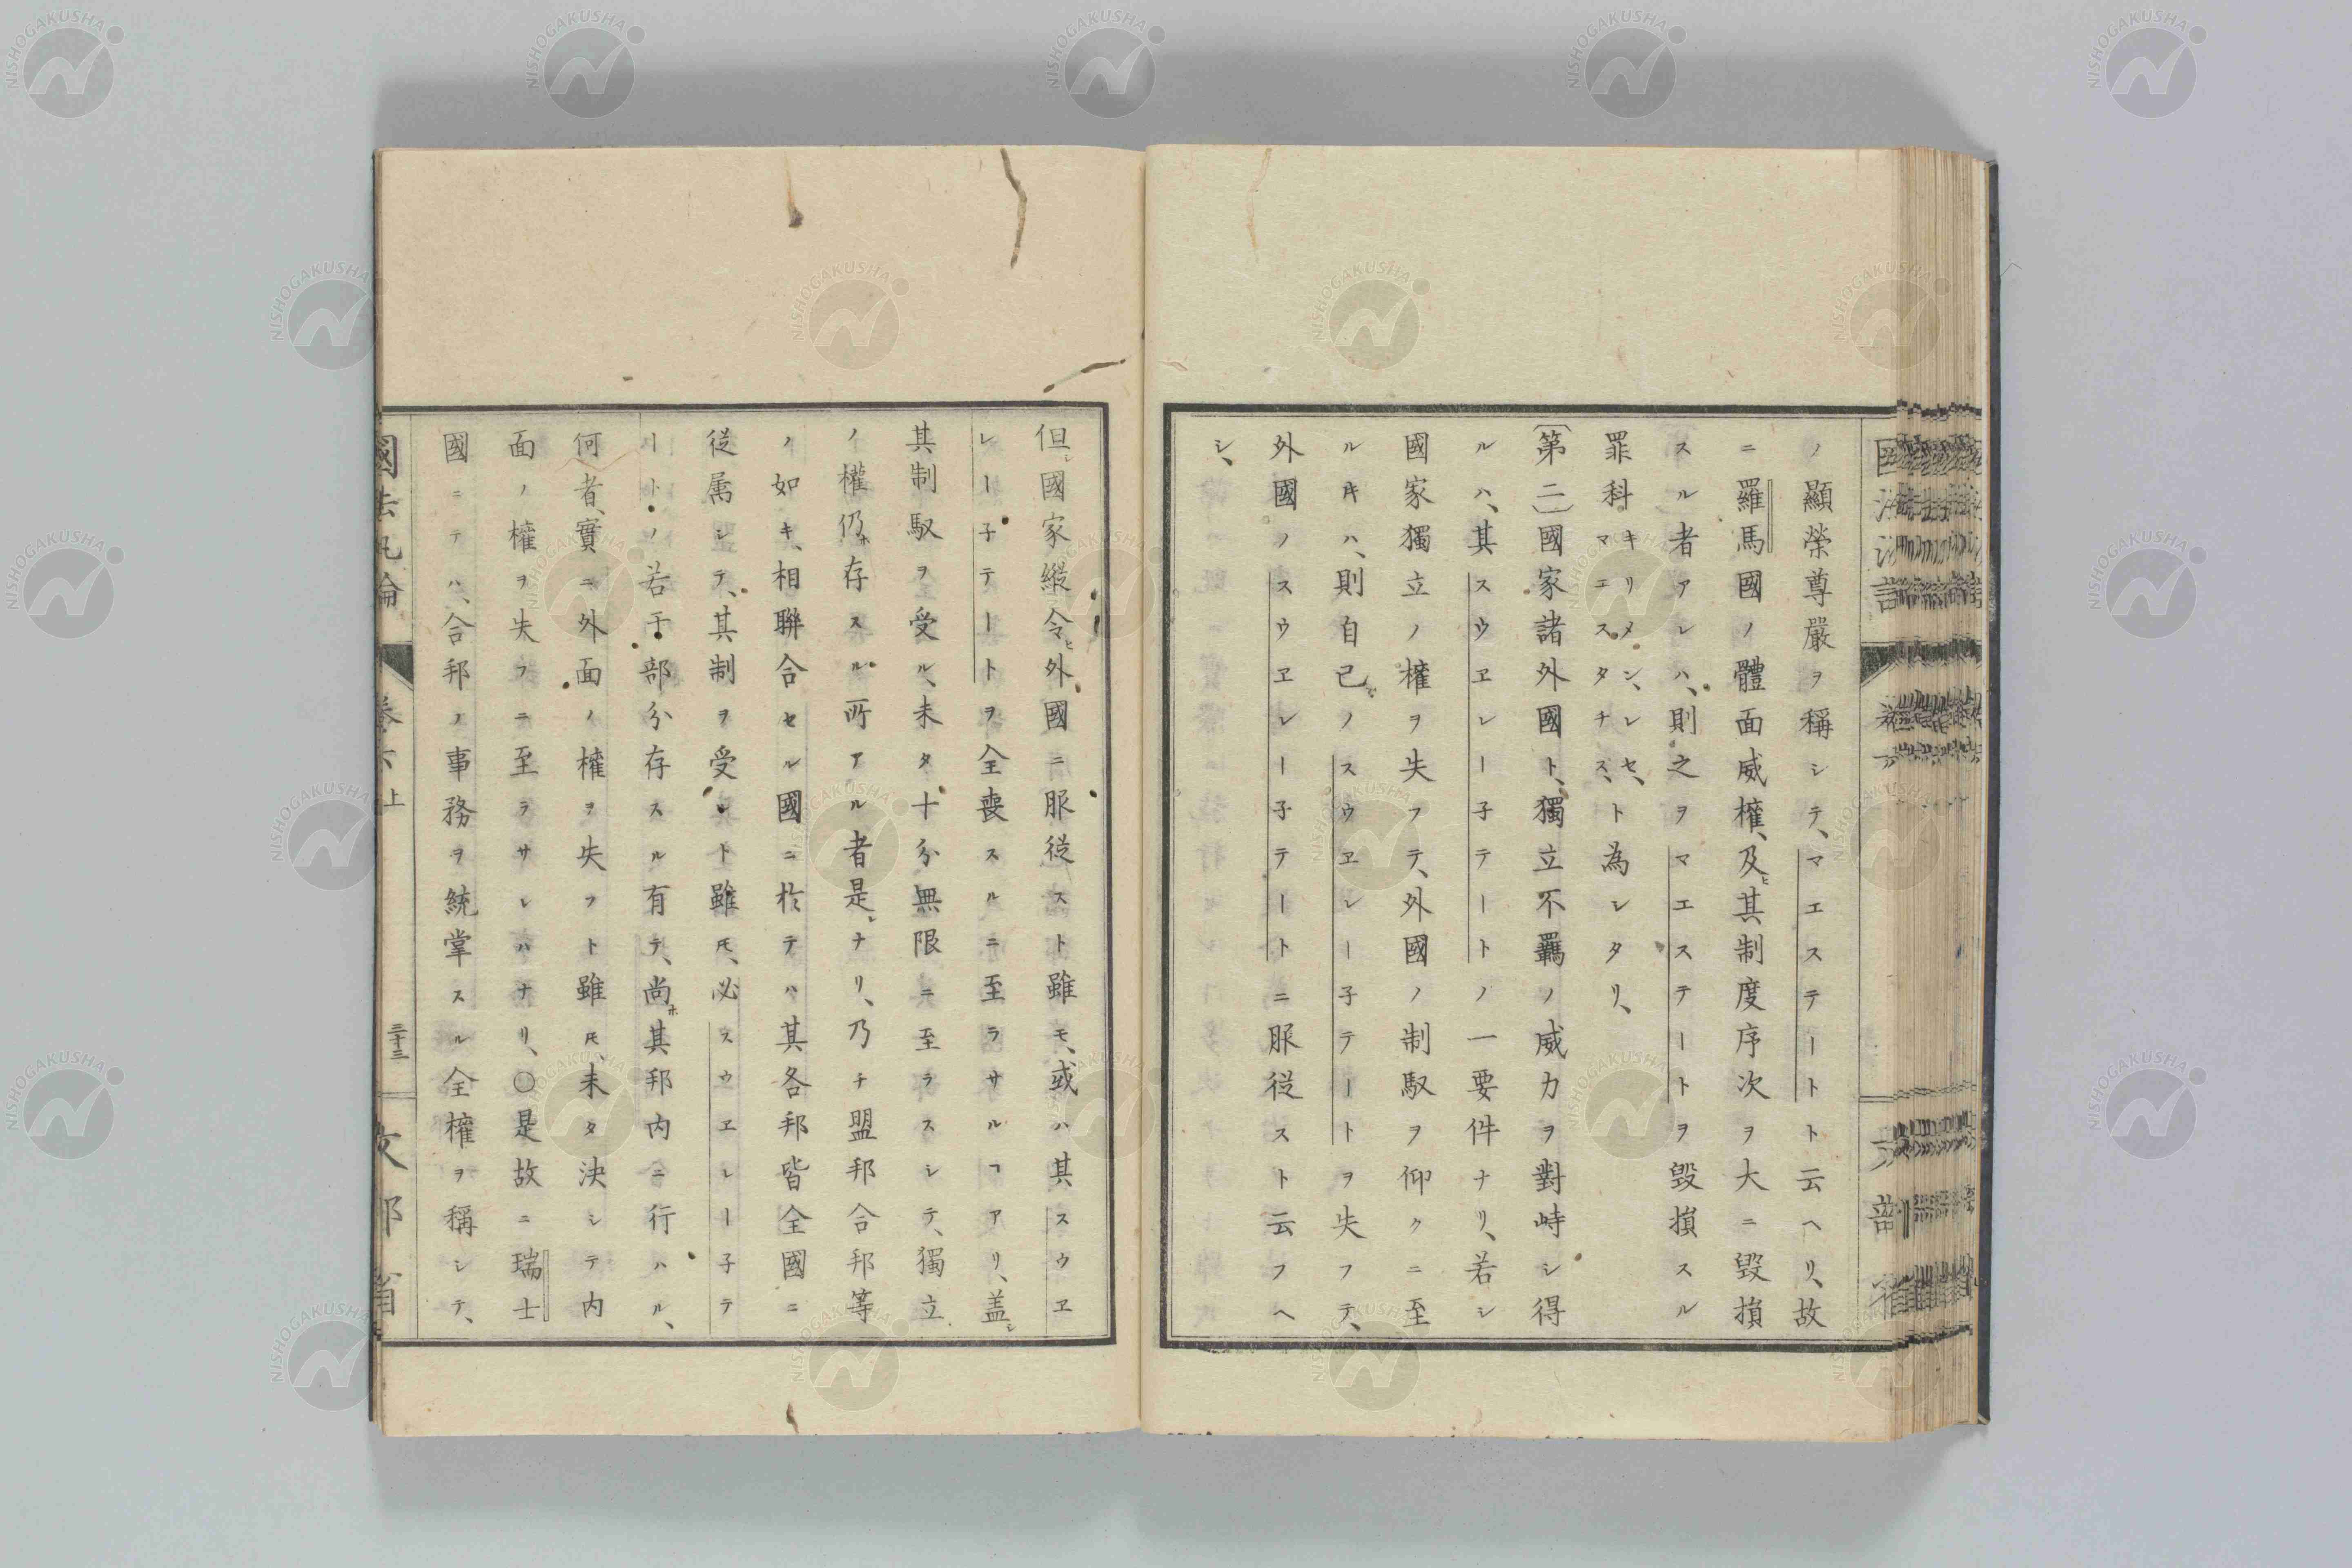 ノ顯榮尊嚴ヲ稱シテ、マエステートト云ヘリ、故
ニ羅馬國ノ體面威權、及ヒ其制度序次ヲ大ニ毀損
スル者アレハ、則之ヲマエステートヲ毀損スル
罪科キリメン、レセ、マエスタチス、ト為シタリ、
〔第二〕國家諸外國ト、獨立不羈ノ威力ヲ對峙シ得
ルハ、其スウヱレー子テートノ一要件ナリ、若シ
國家獨立ノ權ヲ失フテ、外國ノ制馭ヲ仰クニ至
ルキハ、則自己ノスウヱレー子テートヲ失フテ、
外國ノスウヱレー子テートニ服從スト云フヘ
シ、
但シ國家縱令ヒ外國ニ服從スト雖モ、或ハ其スウヱ
レー子テートヲ全喪スルニ至ラサルヿアリ、蓋シ
其制馭ヲ受ル、未タ十分無限ニ至ラスシテ、獨立
ノ權仍ホ存スル所アル者是ナリ、乃チ盟邦合邦等
ノ如キ、相聯合セル國ニ於テハ其各邦皆全國ニ
從属シテ、其制ヲ受レト雖𪜈、必スウヱレー子テ
ートノ若干部分存スル有テ、尚ホ其邦内ニ行ハル、
何者、實ニ外面ノ權ヲ失フト雖𪜈未タ決シテ内
面ノ權ヲ失フニ至ラサレハナリ、○是故ニ瑞士
國ニテハ、合邦ノ事務ヲ統掌スル全權ヲ稱シテ、
國法汎論
卷六上
三十三
文部省
NISHOGAKUSHA